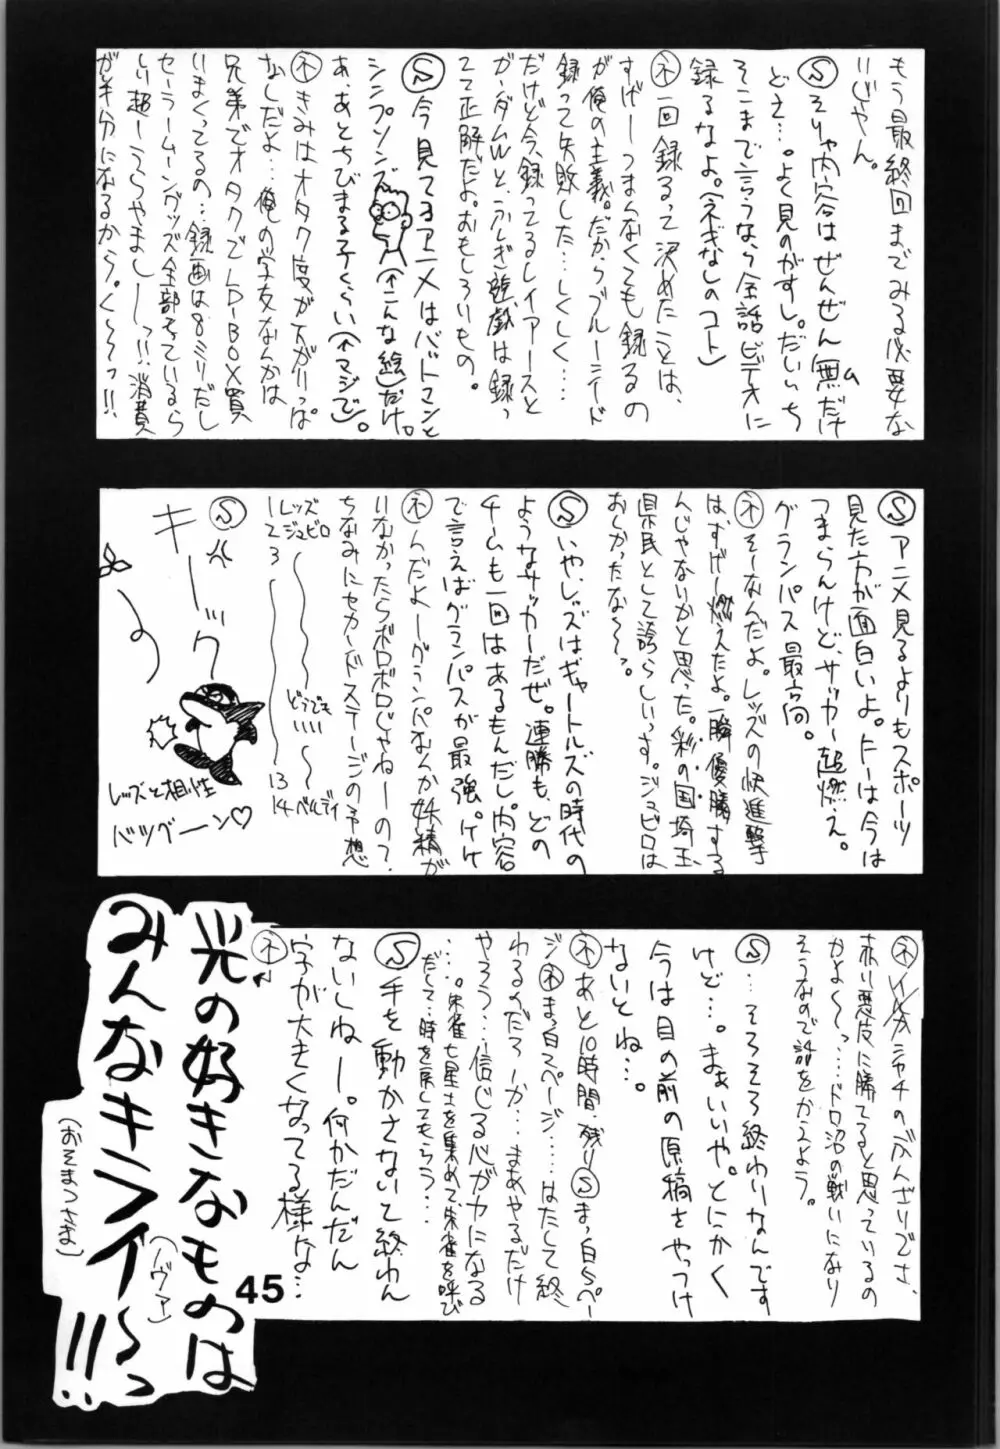 もう最終回までみる必要な
いじゃん。
Ⓢそりゃ内容はぜんぜん無だけ
ム
どさ…。よく見のがすし。だいいち
そこまで言うなら全話ビデオに
録るなよ。(ネギなしのコト)
ネ一回録るって決めたことは、
すげーつまんなくても録るの
が俺の主義。だからブルーシード
録って失敗した…しくしく…
だけど今、録ってるレイアースと
ガンダムWと、ふしぎ遊戯は録っ
てて正解だよ。おもしろいもの。
Ⓢ今見てるアニメはバットマンと
シンプソンズ(↑こんな絵)だけ。
あ、あとちびまる子くらい(↑マジで)。
ネきみはオタク度が下がりっぱ
なしだよ…俺の学友なんかは
兄弟でオタクでLD-BOX買
いまくってるの…録画は8ミリだし
セーラームーングッズ全部そろているら
しい超ーうらやましーーっ!!消費
が半分になるから。く〜〜っ!!
Ⓢアニメ見るよりもスポーツ
見た方が面白いよ。Fーは今は
つまらんけど、サッカー超燃え。
グランパス最高。
ネそーなんだよ。レッズの快進撃
は、すげー燃えたよ。一瞬優勝する
んじゃないかと思った。彩の国埼玉
県民として誇らしいっす。ジュビロは
おしかったな〜っ。
Ⓢいや、レッズはギャートルズの時代の
ようなサッカーだぜ。連勝も、どの
チームも一回はあるもんだし、内容
で言えばグランパスが最強。ケケ
ネんだよーグランパなんか妖精が
いなかったらボロボロじゃねーの?
ちなみにセカンドステージの予想
1 レッズ
2 ジュビロ
3
〜どうでもいいい〜
13
14 ベルディ
Ⓢ
キーック
レッズと相性
バツグーン♡
赤い悪皮に勝てると思っているの
かよ〜っ…ドロ沼の戦いになり
そうなので話をかえよう。
Ⓢ…そろそろ終わりなんです
けど…。まぁいいや。とにかく
今は目の前の原稿をやっつけ
ないとね…。
ネあと10時間・残りⓈまっ白5ペー
ジネまっ白スページ……はたして終
わるのだろーか…まあやるだけ
やろう…信じる心が力になる
…。朱雀七星士を集めて朱雀を呼び
だして…時を戻してもらう…
Ⓢ手を動かさないと終わん
ないしねー。何かだんだん
字が大きくなってる様な…
ネ
光の好きなものは
みんなキライ〜っ!!
(ノヴァ)
(おそまつさま)
45